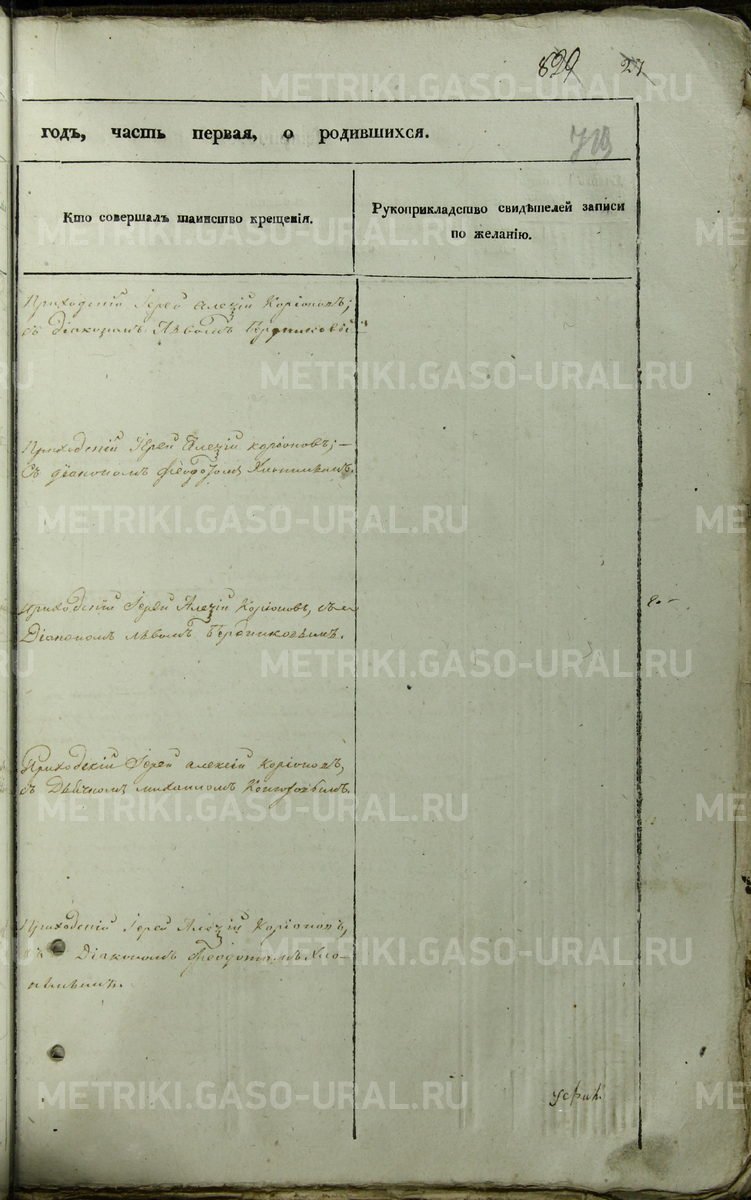 829 27
годъ, часть первая, о родившихся.
719
Кто совершалъ таинство крещенія.
Рукоприкладство свидѣтелей записи
по желанію.
Приходскій Іерей Алексій Коріоновъ;
съ Діакономъ Львомъ
Приходскій Іерей Алексій Коріоновъ;—
Съ діакономъ Ѳеодотомъ
Приходскій Іерей Алексій Коріоновъ, съ
Діакономъ Львомъ Бердниковымъ.
Приходскій Іерей Алексій Коріоновъ,
съ Дьячкомъ Михаиломъ
Приходскій Іерей Алексій Коріоновъ,
Діакономъ Ѳеодотомъ
METRIKI.GASO-URAL.RU